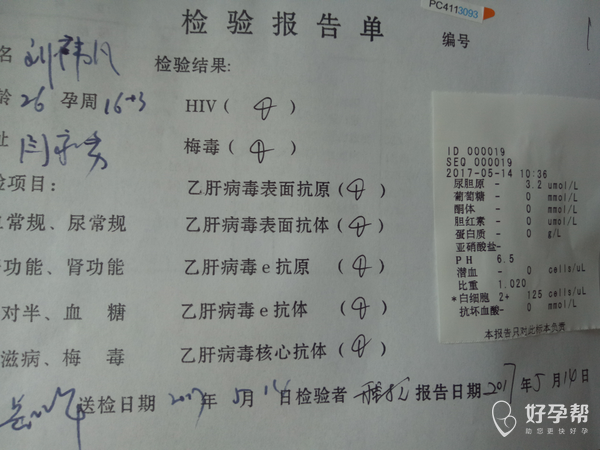 PC4113093
检验报告单
编号
名
检验结果:
龄 26 孕周 16+3
HIV( )
址
梅毒( )
ID 000019
SEQ 000019
2017-05-14 10:36
尿胆原 - 3.2 umol/L
葡萄糖 - 0 mmol/L
酮体 - 0 mmol/L
胆红素 - 0 umol/L
蛋白质 - 0 g/L
亚硝酸盐-
PH 6.5
潜血 - 0 cells/uL
比重 1.020
*白细胞 2+ 125 cells/uL
抗坏血酸- 0 mmol/L
本报告只对此标本负责
检项目:
乙肝病毒表面抗原( )
常规、尿常规
乙肝病毒表面抗体( )
功能、肾功能
乙肝病毒e抗原( )
对半、血 糖
乙肝病毒e抗体( )
滋病、梅 毒
乙肝病毒核心抗体( )
送检日期 2017年 5月 14日 检验者 报告日期 2017年 5月 14日
好孕帮
助您更快好孕